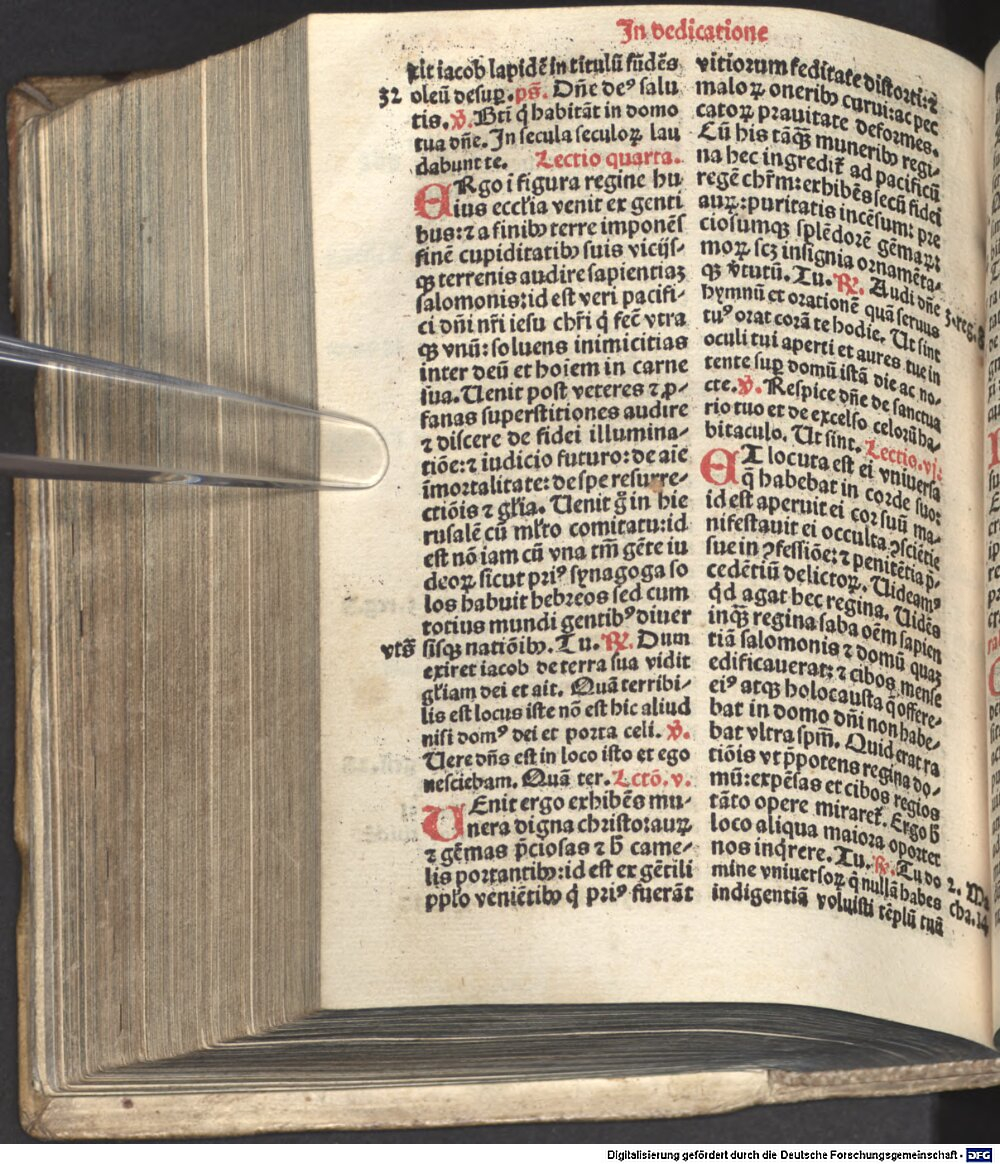 In dedicatione
xit iacob lapidē in titulū fūdēs
32 oleū desuꝑ. ps̄. Dn̄e deꝰ salu
tis. v̄. Bti q̄ habitāt in domo
tua dn̄e. In secula seculoꝝ lau
dabunt te. Lectio quarta.
ERgo ī figura regine hu
ius eccl'ia venit ex genti
bus: ⁊ a finibꝰ terre imponēs
finē cupiditatibꝰ suis vicijs-
qꝫ terrenis audire sapientiaꝫ
salomonis: id est veri pacifi-
ci dn̄i nr̄i iesu chr̄i q̄ fec̄ vtra
qꝫ vnū: soluens inimicitias
inter deū et hoīem in carne
sua. Uenit post veteres ⁊ ꝓ-
fanas superstitiones audire
⁊ discere de fidei illumina-
tiōe: ⁊ iudicio futuro: de aīe
īmortalitate: de spe resurre-
ctiōis ⁊ gl'ia. Uenit g̊ in hie
rusalē cū ml'to comitatu: id
est nō iam cū vna tm̄ gēte iu
deoꝝ sicut priꝰ synagoga so
los habuit hebreos sed cum
totius mundi gentibꝰ diuer
vts̄ sisqꝫ natiōibꝰ. Tu. ℟. Dum
exiret iacob de terra sua vidit
gl'iam dei et ait. Quā terribi-
lis est locus iste nō est hic aliud
nisi domꝰ dei et porta celi. v̄.
Uere dn̄s est in loco isto et ego
nesciebam. Quā ter. Lctō. v.
UEnit ergo exhibēs mu-
nera digna christo: auꝝ
⁊ gēmas p̄ciosas ⁊ h̄ came-
lis portantibꝰ: id est ex gētili
pplo veniētibꝰ q̄ priꝰ fuerāt
vitiorum feditate distorti: ⁊
maloꝝ oneribꝰ curui: ac pec
catoꝝ prauitate deformes.
Cū his tāqꝫ muneribꝰ regi-
na hec ingredit᷑ ad pacificū
regē chr̄m: exhibēs secū fidei
auꝝ: puritatis incēsum: pre
ciosumqꝫ splēdorē gēmaꝝ:
moꝝ scꝫ insignia ornamēta-
qꝫ v̄tutū. Tu. ℟. Audi dn̄e 3. reg. 8
hymnū et orationē quā seruus
tuꝰ orat corā te hodie. Ut sint
oculi tui aperti et aures tue in
tente suꝑ domū istā die ac no-
cte. v̄. Respice dn̄e de sanctua
rio tuo et de excelso celorū ha-
bitaculo. Ut sint. Lectio. vj.
ET locuta est ei vniuersa
q̄ habebat in corde suo:
id est aperuit ei cor suū ma-
nifestauit ei occulta ꝯsciētie
sue in ꝯfessiōe: ⁊ penitētia p̄-
cedētiū delictoꝝ. Uideamꝰ
qd̄ agat hec regina. Uidēs
inqꝫ regina saba oēm sapien
tiā salomonis ⁊ domū quaꝫ
edificauerat: ⁊ cibos mense
eiꝰ atqꝫ holocausta q̄ offere-
bat in domo dn̄i non habe-
bat vltra spm̄. Quid erat ra
tiōis vt p̄potens regina do-
mū: expēsas et cibos regios
tāto opere miraret᷑. Ergo h̄
loco aliqua maiora oportet
nos inq̄rere. Tu. ℟. Tu do
mine vniuersoꝝ q̄ nullā habes 2. Ma
indigentiā voluisti tēplū tuū cha. 14
Digitalisierung gefördert durch die Deutsche Forschungsgemeinschaft - DFG